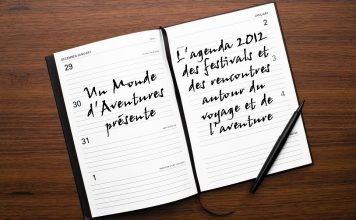 DECEMBER/JANUARY
29
30
31
1
Un Monde
d'Aventures
présente
JANUARY
2
3
4
L'agenda 2012
des festivals et
des rencontres
autour du
voyage et de
l'aventure